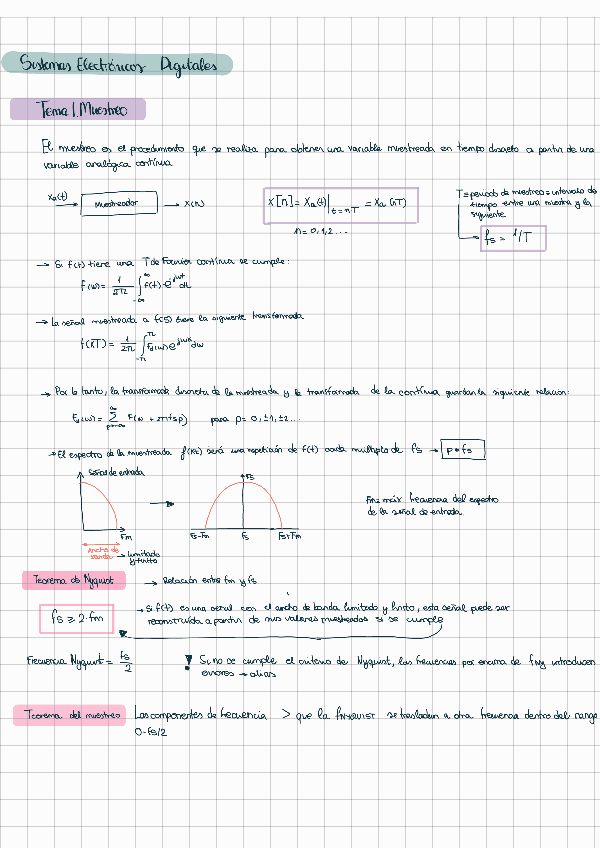 Sistemas Electrónicos Digitales
Tema 1. Muestreo
El muestreo es el procedimiento que se realiza para obtener una variable muestreada en tiempo discreto a partir de una
variable analógica continua
Xa(t) → Muestreador → X(n)
X[n] = Xa(t)|t=n·T = Xa(nT)
n=0,1,2...
T=periodo de muestreo=intervalo de
tiempo entre una muestra y la
siguiente
fs = 1/T
→ Si f(t) tiene una T de Fourier continua se cumple:
F(ω) = 1/2π ∫-∞^∞ f(t)·e^jωt dt
→ La señal muestreada a f(s) tiene la siguiente transformada
f(KT) = 1/2π ∫-π^π Fd(ω) e^jωk dω
→ Por lo tanto, la transformada discreta de la muestreada y la transformada de la continua guardan la siguiente relación:
Fd(ω) = ∑p=-∞^∞ F(ω + 2πfsp) para p= 0,±1,±2...
→ El espectro de la muestreada f(kt) será una repetición de f(t) cada múltiplo de fs → p•fs
Señal de entrada
Fm
Ancho de
banda → limitado
y finito
Fs
Fs-Fm Fs Fs+Fm
Fm= máx frecuencia del espectro
de la señal de entrada.
Teorema de Nyquist → Relación entre fm y fs
fs ≥ 2·fm
→ Si f(t) es una señal con el ancho de banda limitado y finito, esta señal puede ser
reconstruida a partir de sus valores muestreados si se cumple
Frecuencia Nyquist = fs/2
! Si no se cumple el criterio de Nyquist, las frecuencias por encima de fNy introducen
errores → alias
Teorema del muestreo Las componentes de frecuencia > que la fNYQUIST se trasladan a otra frecuencia dentro del rango
0-fs/2